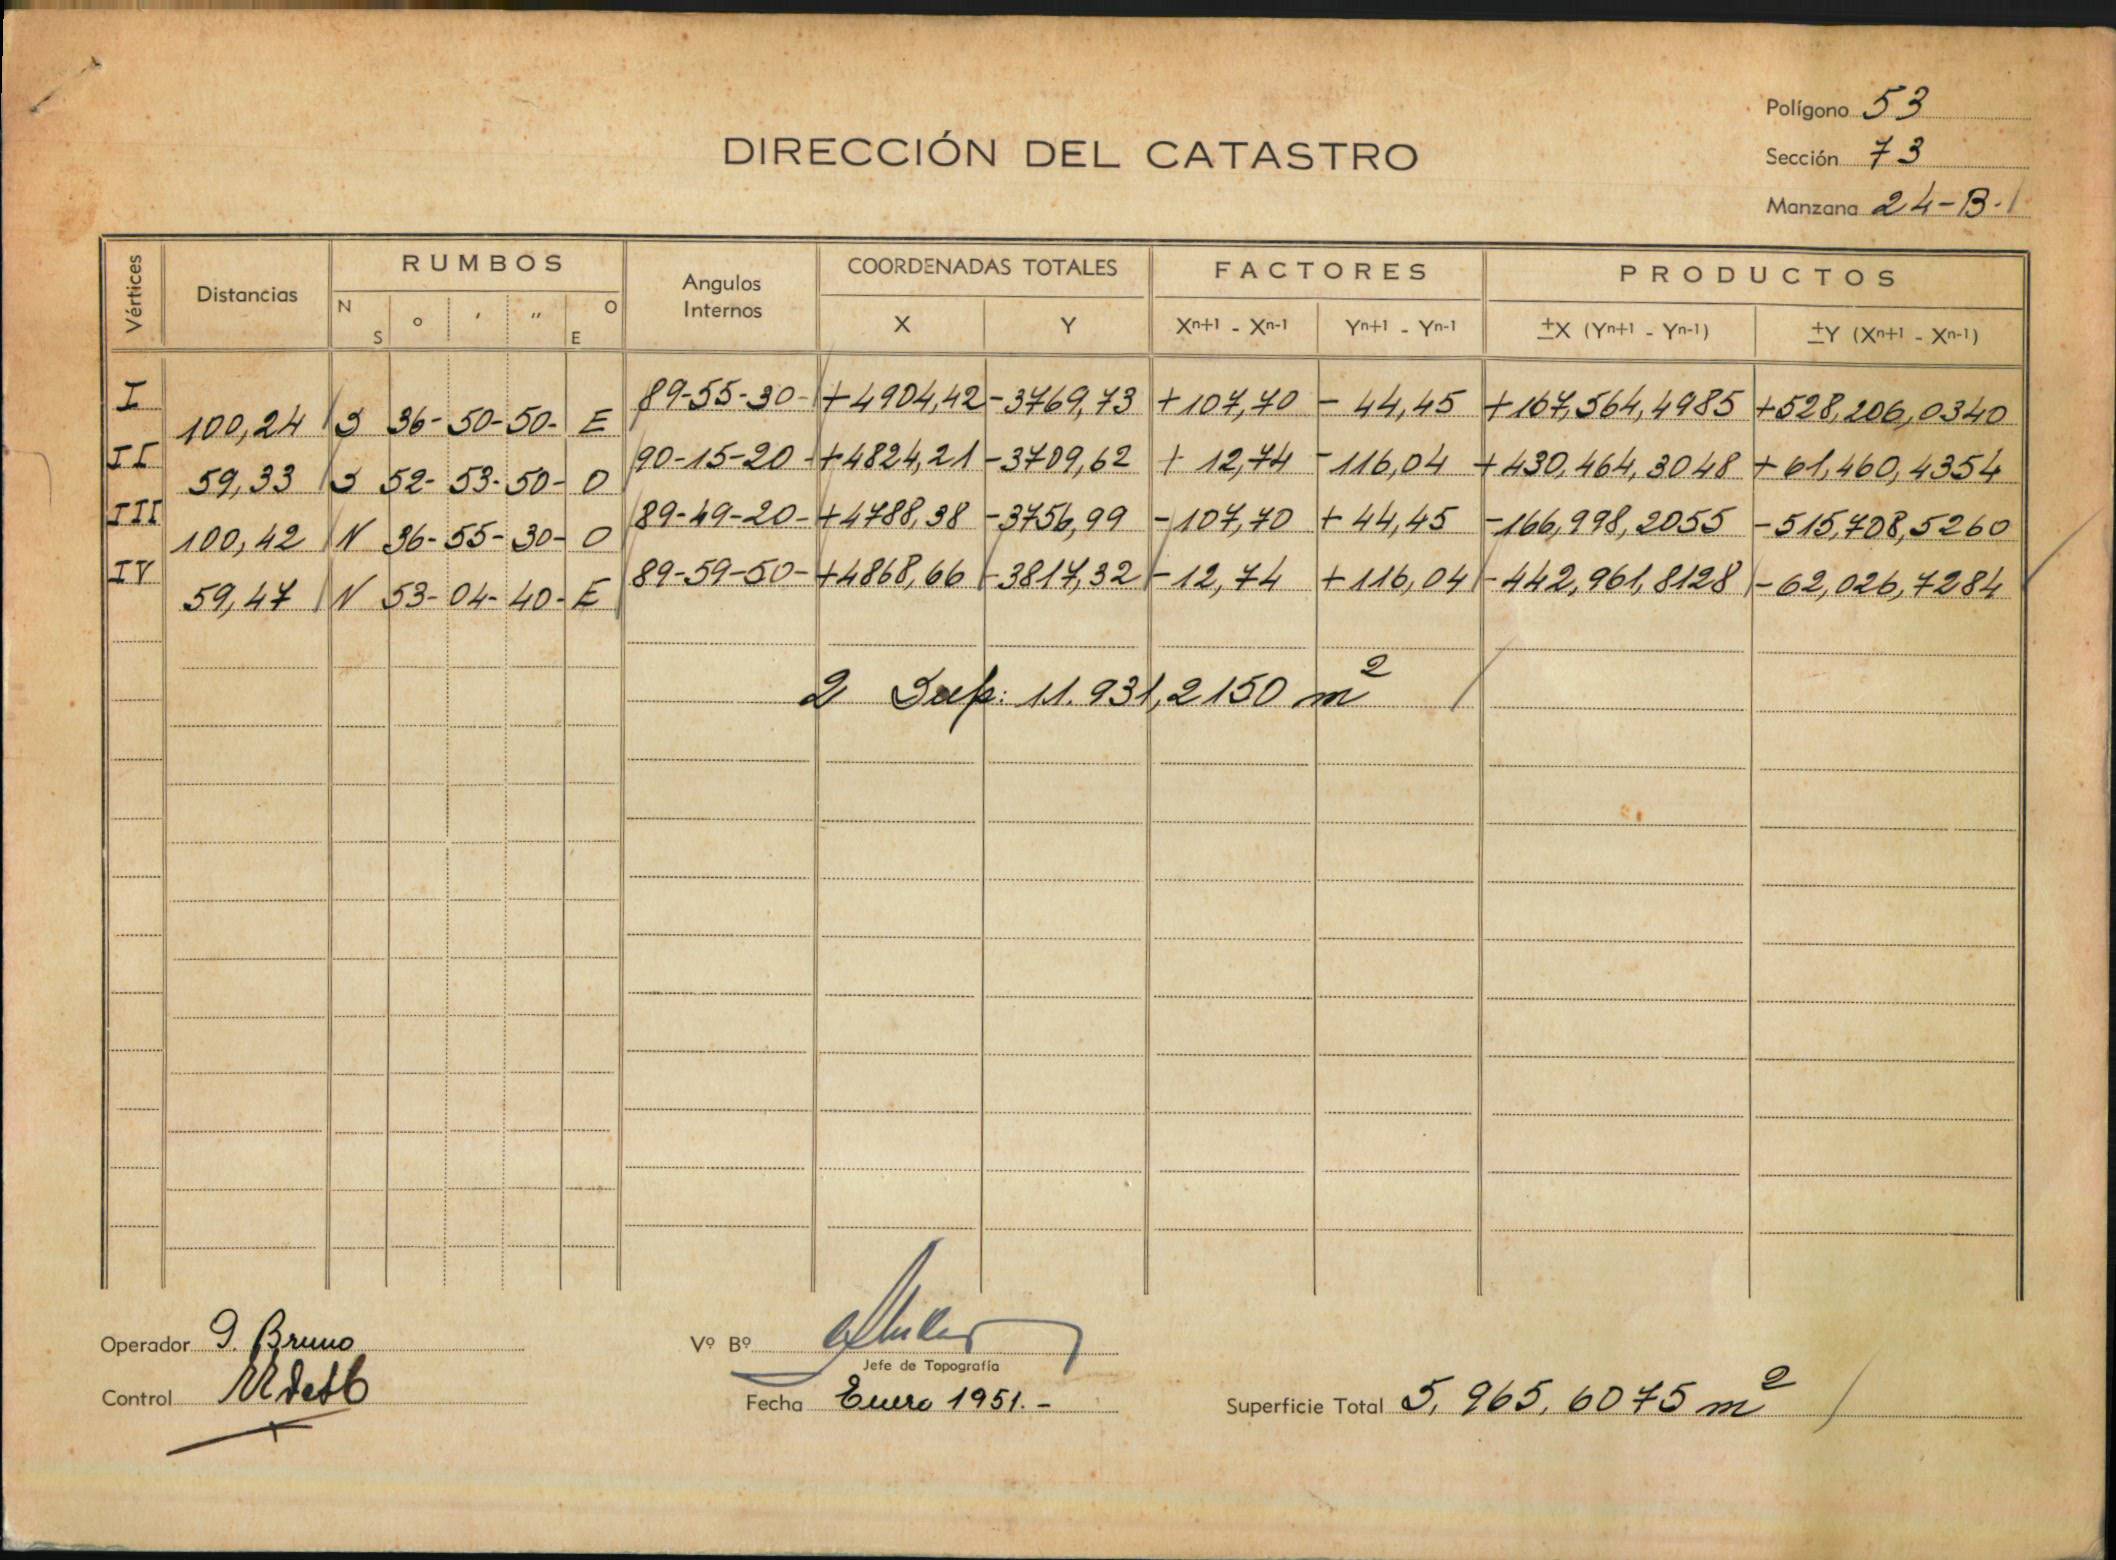 Polígono 53
DIRECCIÓN DEL CATASTRO
Sección 73
Manzana 24-B-1
Vértices Distancias RUMBOS Angulos Internos COORDENADAS TOTALES FACTORES PRODUCTOS
N S o ' " O E X Y Xn+1 - Xn-1 Yn+1 - Yn-1 ±X (Yn+1 - Yn-1) ±Y (Xn+1 - Xn-1)
I 89-55-30- +4904,42 -3769,73 +107,70 - 44,45 +167,564,4985 +528,206,0340
100,24 S 36- 50- 50- E
II 90-15-20- +4824,21 -3709,62 + 12,74 -116,04 +430,464,3048 +61,460,4354
59,33 S 52- 53- 50- O
III 89-49-20- +4788,38 -3756,99 -107,70 + 44,45 -166,998,2055 -515,708,5260
100,42 N 36- 55- 30- O
IV 89-59-50- +4868,66 -3817,32 -12,74 +116,04 -442,961,8128 -62,026,7284
59,47 N 53- 04- 40- E
2 Sup: 11.931,2150 m2
Operador D. Bruno
Vº Bº
Jefe de Topografía
Control
Fecha Enero 1951.-
Superficie Total 5,965,6075 m2